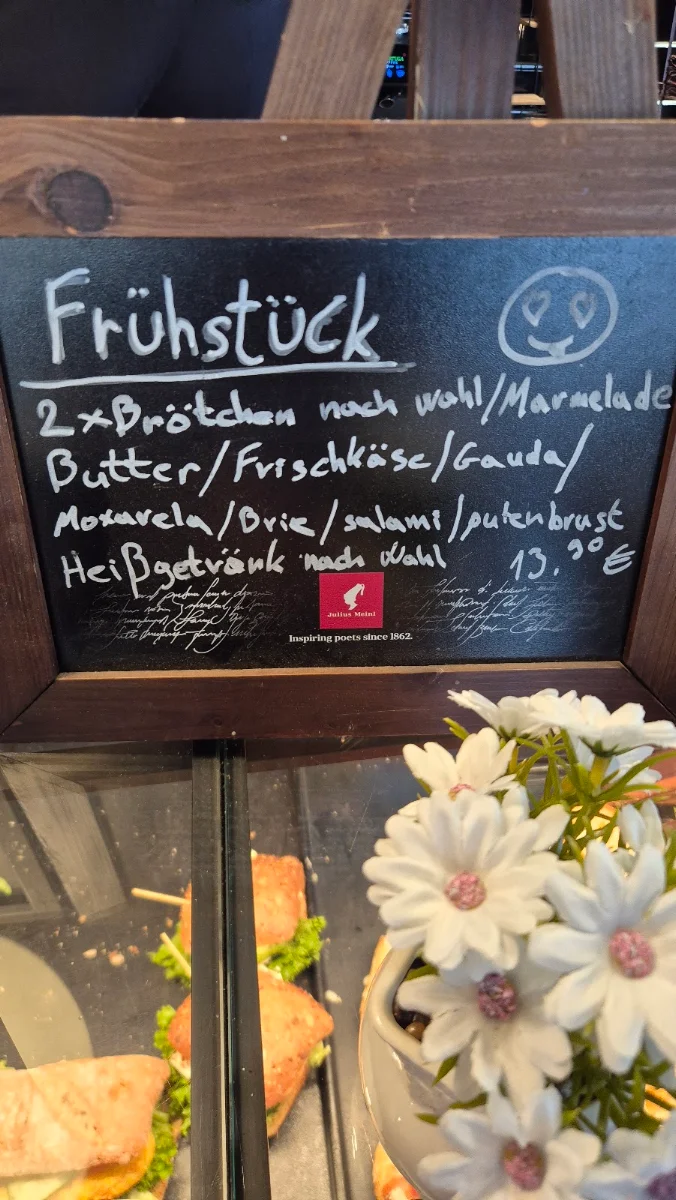 Frühstück
2xBrötchen nach wahl/Marmelade
Butter/Frischkäse/Gauda/
Moxarela/Brie/salami/putenbrust
Heißgetränk nach Wahl 13.90€
Julius Meinl
Inspiring poets since 1862.